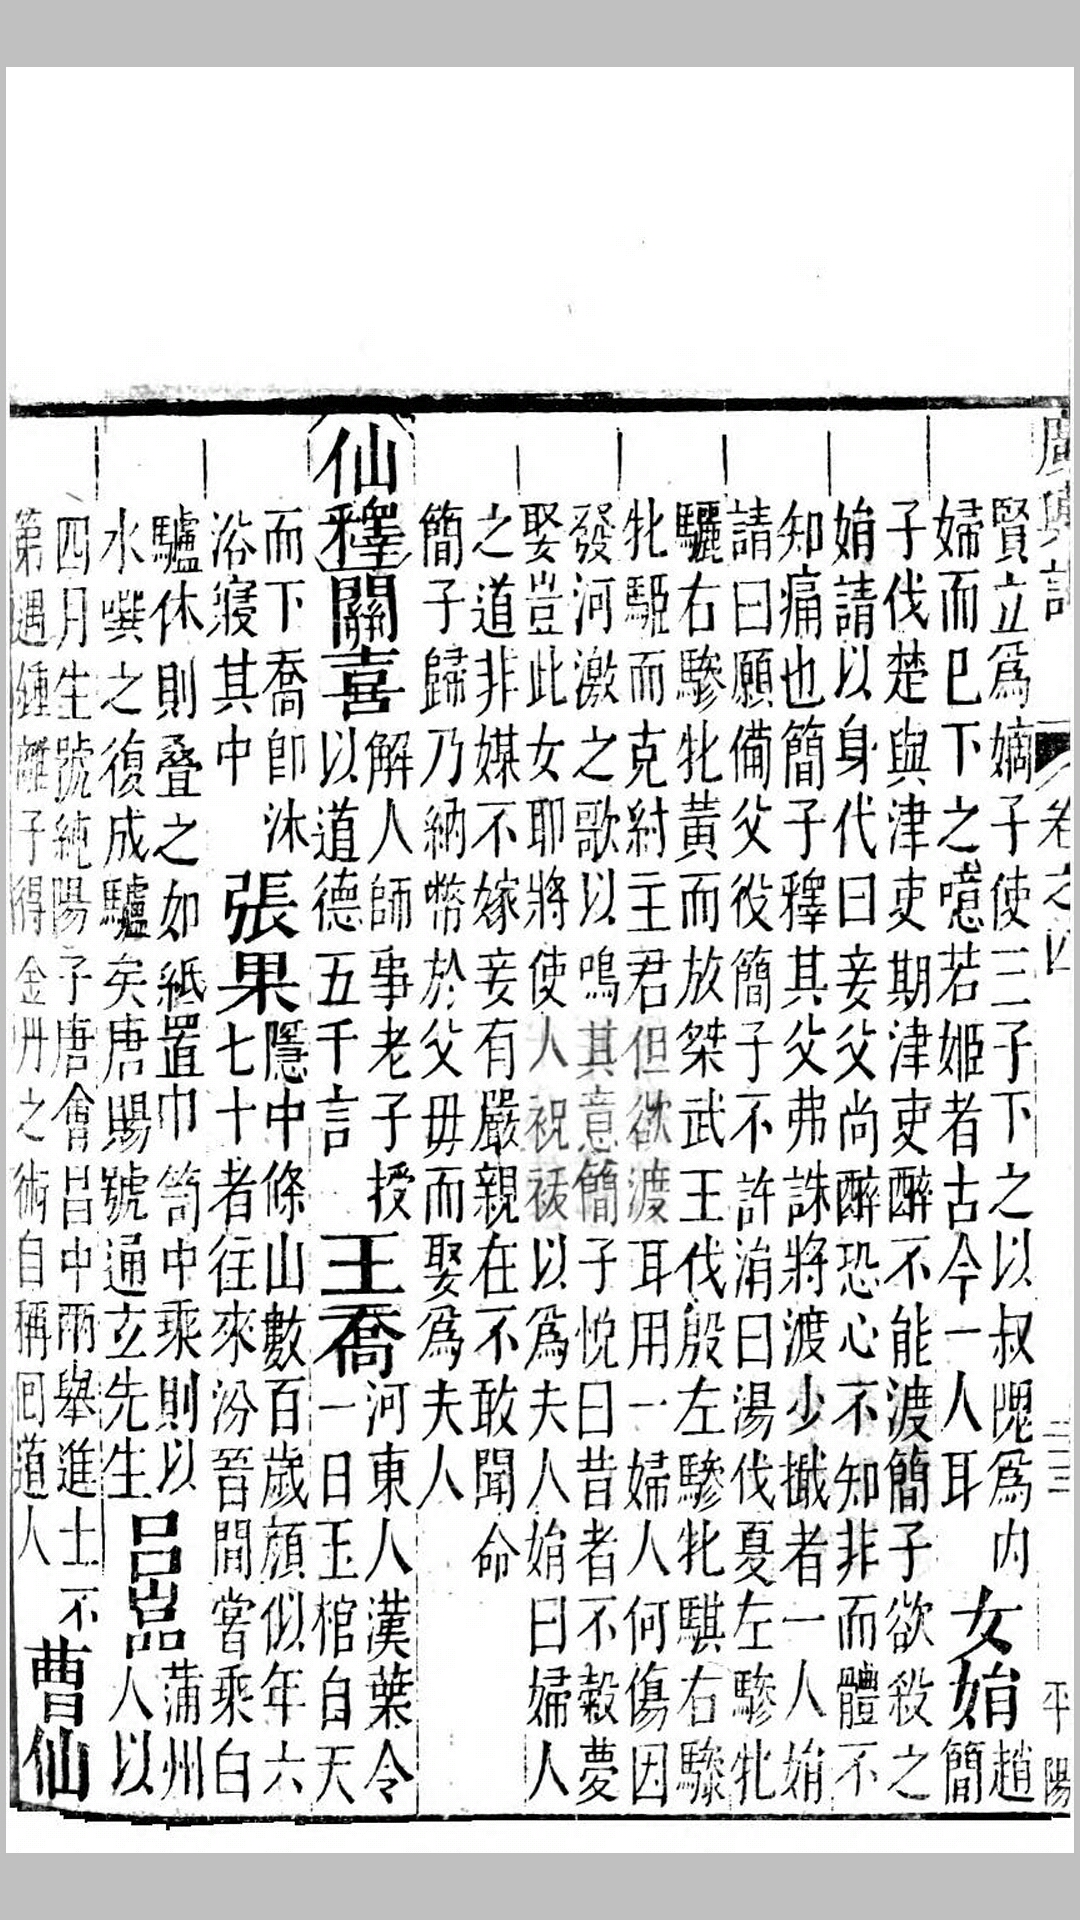 廣輿記 卷之四 二三 平陽
賢立爲嫡子使三子下之以叔隗爲内
婦而已下之噫若姬者古今一人耳
女娟
趙
簡
子伐楚與津吏期津吏醉不能渡簡子欲殺之
娟請以身代曰妾父尚醉恐心不知非而體不
知痛也簡子釋其父弗誅將渡少檝者一人娟
請曰願備父役簡子不許涓曰湯伐夏左驂牝
驪右驂牝黃而放桀武王伐殷左驂牝騏右驂
牝騩而克紂主君但欲渡耳用一婦人何傷因
發河激之歌以鳴其意簡子悅曰昔者不穀夢
娶豈此女耶將使人祝祓以爲夫人娟曰婦人
之道非媒不嫁妾有嚴親在不敢聞命
簡子歸乃納幣於父毋而娶爲夫人
仙釋
關喜
解人師事老子授
以道德五千言
王喬
河東人漢葉令
一日玉棺白天
而下喬卽沐
浴寢其中
張果
隱中條山數百歲顔似年六
七十者往來汾晉間嘗乘白
驢休則叠之如紙置巾笥中乘則以
水噀之復成驢矣唐賜號通玄先生
呂嵒
蒲州
人以
四月生號純陽子唐會昌中兩舉進士不
第遇鍾離子得金丹之術自稱回道人
曹仙